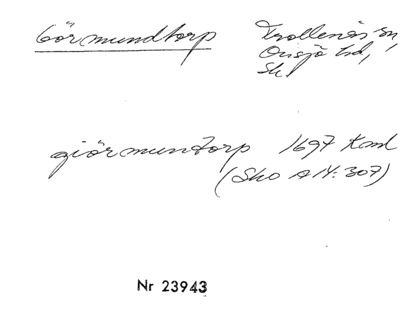 Görmundtorp
Trollenäs sn
Onsjö hd,
Sk
giörmuntorp 1697 Kml
(Sko A14:307)
Nr 23943